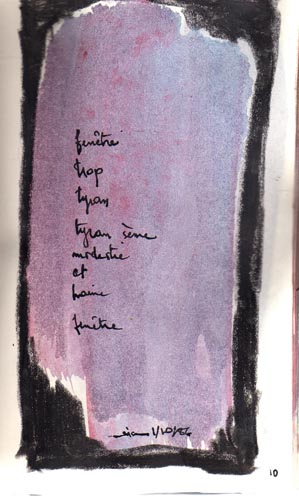 fenêtre
trop
tyran
tyran sème
modestie
et
haine
fenêtre
10